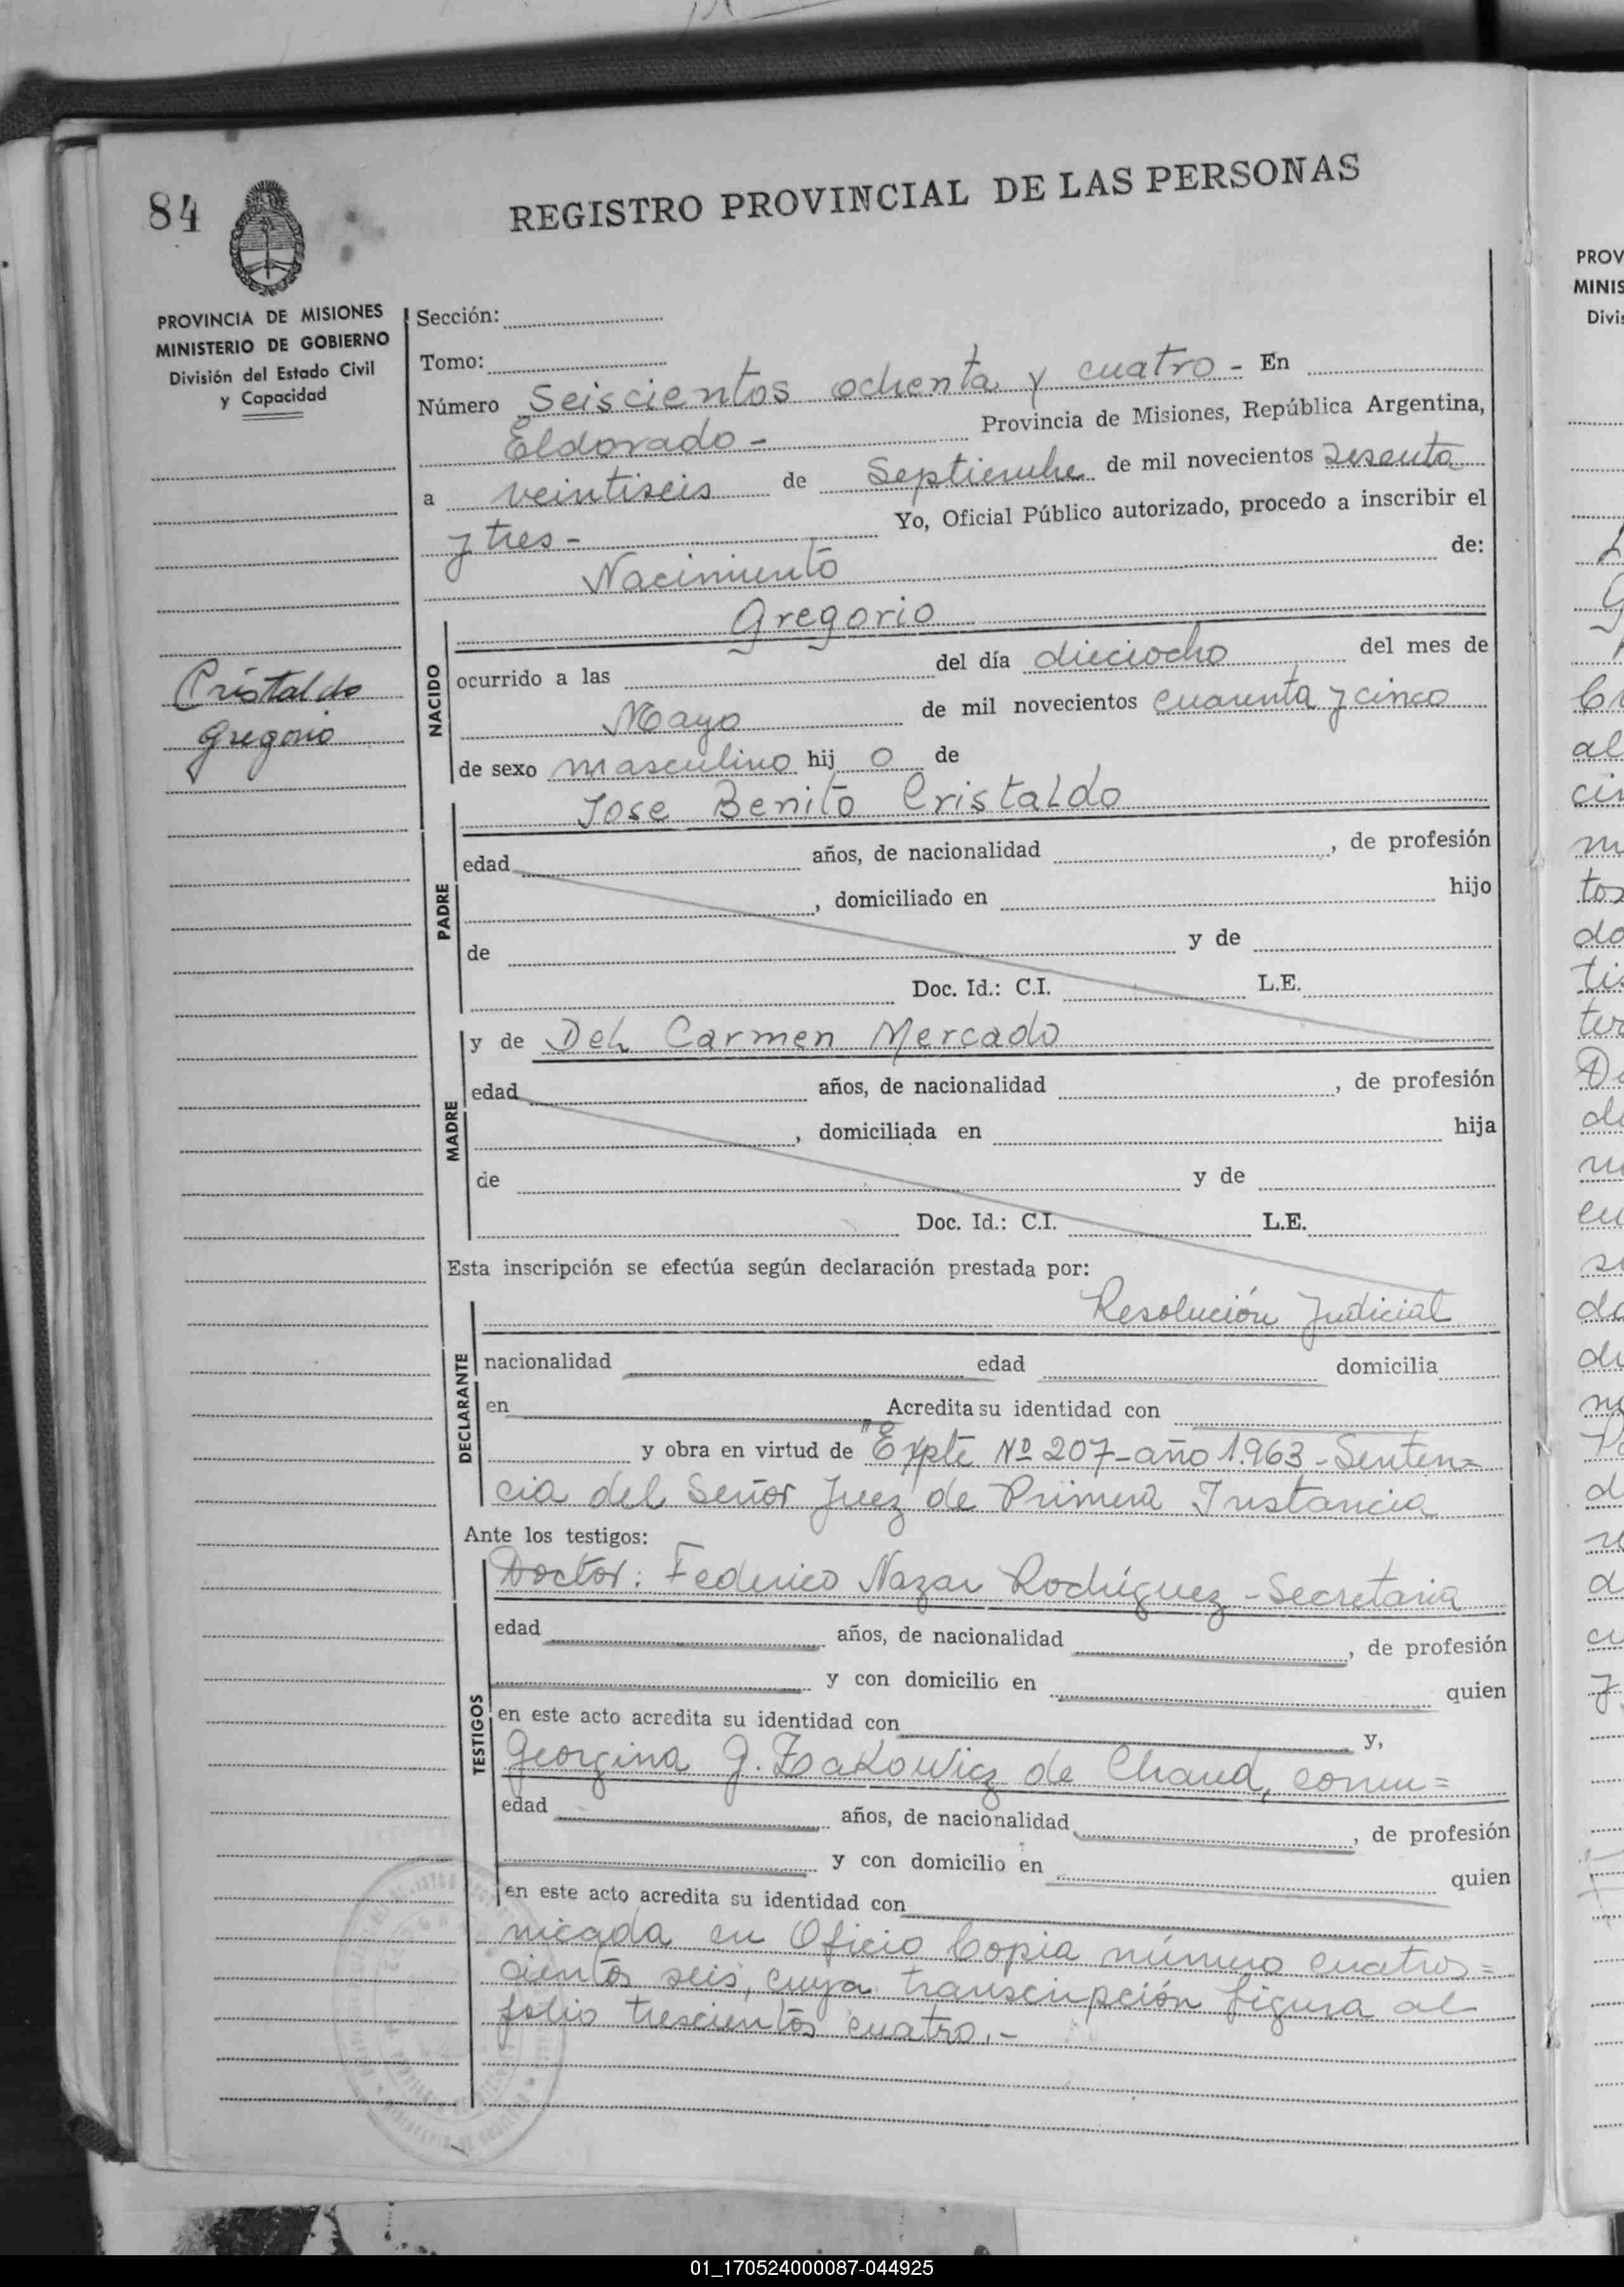 84
REGISTRO PROVINCIAL DE LAS PERSONAS
PROVINCIA DE MISIONES
MINISTERIO DE GOBIERNO
División del Estado Civil
y Capacidad
Cristaldo
Gregorio
Sección:
Tomo:
Número Seiscientos ochenta y cuatro - En
Eldorado - Provincia de Misiones, República Argentina,
a veintiseis de Septiembre de mil novecientos sesenta
y tres - Yo, Oficial Público autorizado, procedo a inscribir el
Nacimiento de:
NACIDO
Gregorio
ocurrido a las del día dieciocho del mes de
Mayo de mil novecientos cuarenta y cinco
de sexo masculino hij o de
PADRE
Jose Benito Cristaldo
edad años, de nacionalidad , de profesión
, domiciliado en hijo
de y de
Doc. Id.: C.I. L.E.
MADRE
y de Del Carmen Mercado
edad años, de nacionalidad , de profesión
, domiciliada en hija
de y de
Doc. Id.: C.I. L.E.
Esta inscripción se efectúa según declaración prestada por:
DECLARANTE
Resolución Judicial
nacionalidad edad domicilia
en Acredita su identidad con
y obra en virtud de Expte Nº 207-año 1.963-Senten=
cia del Señor Juez de Primera Instancia
Ante los testigos:
TESTIGOS
Doctor: Federico Nazar Rodríguez - Secretaria
edad años, de nacionalidad , de profesión
y con domicilio en quien
en este acto acredita su identidad con y,
Georgina G. Zakowicz de Chaud, comu=
edad años, de nacionalidad , de profesión
y con domicilio en quien
en este acto acredita su identidad con
nicada en Oficio Copia número cuatros=
cientos seis, cuya transcripción figura al
folio trescientos cuatro.-
PROV
MINIS
Divis
01_170524000087-044925